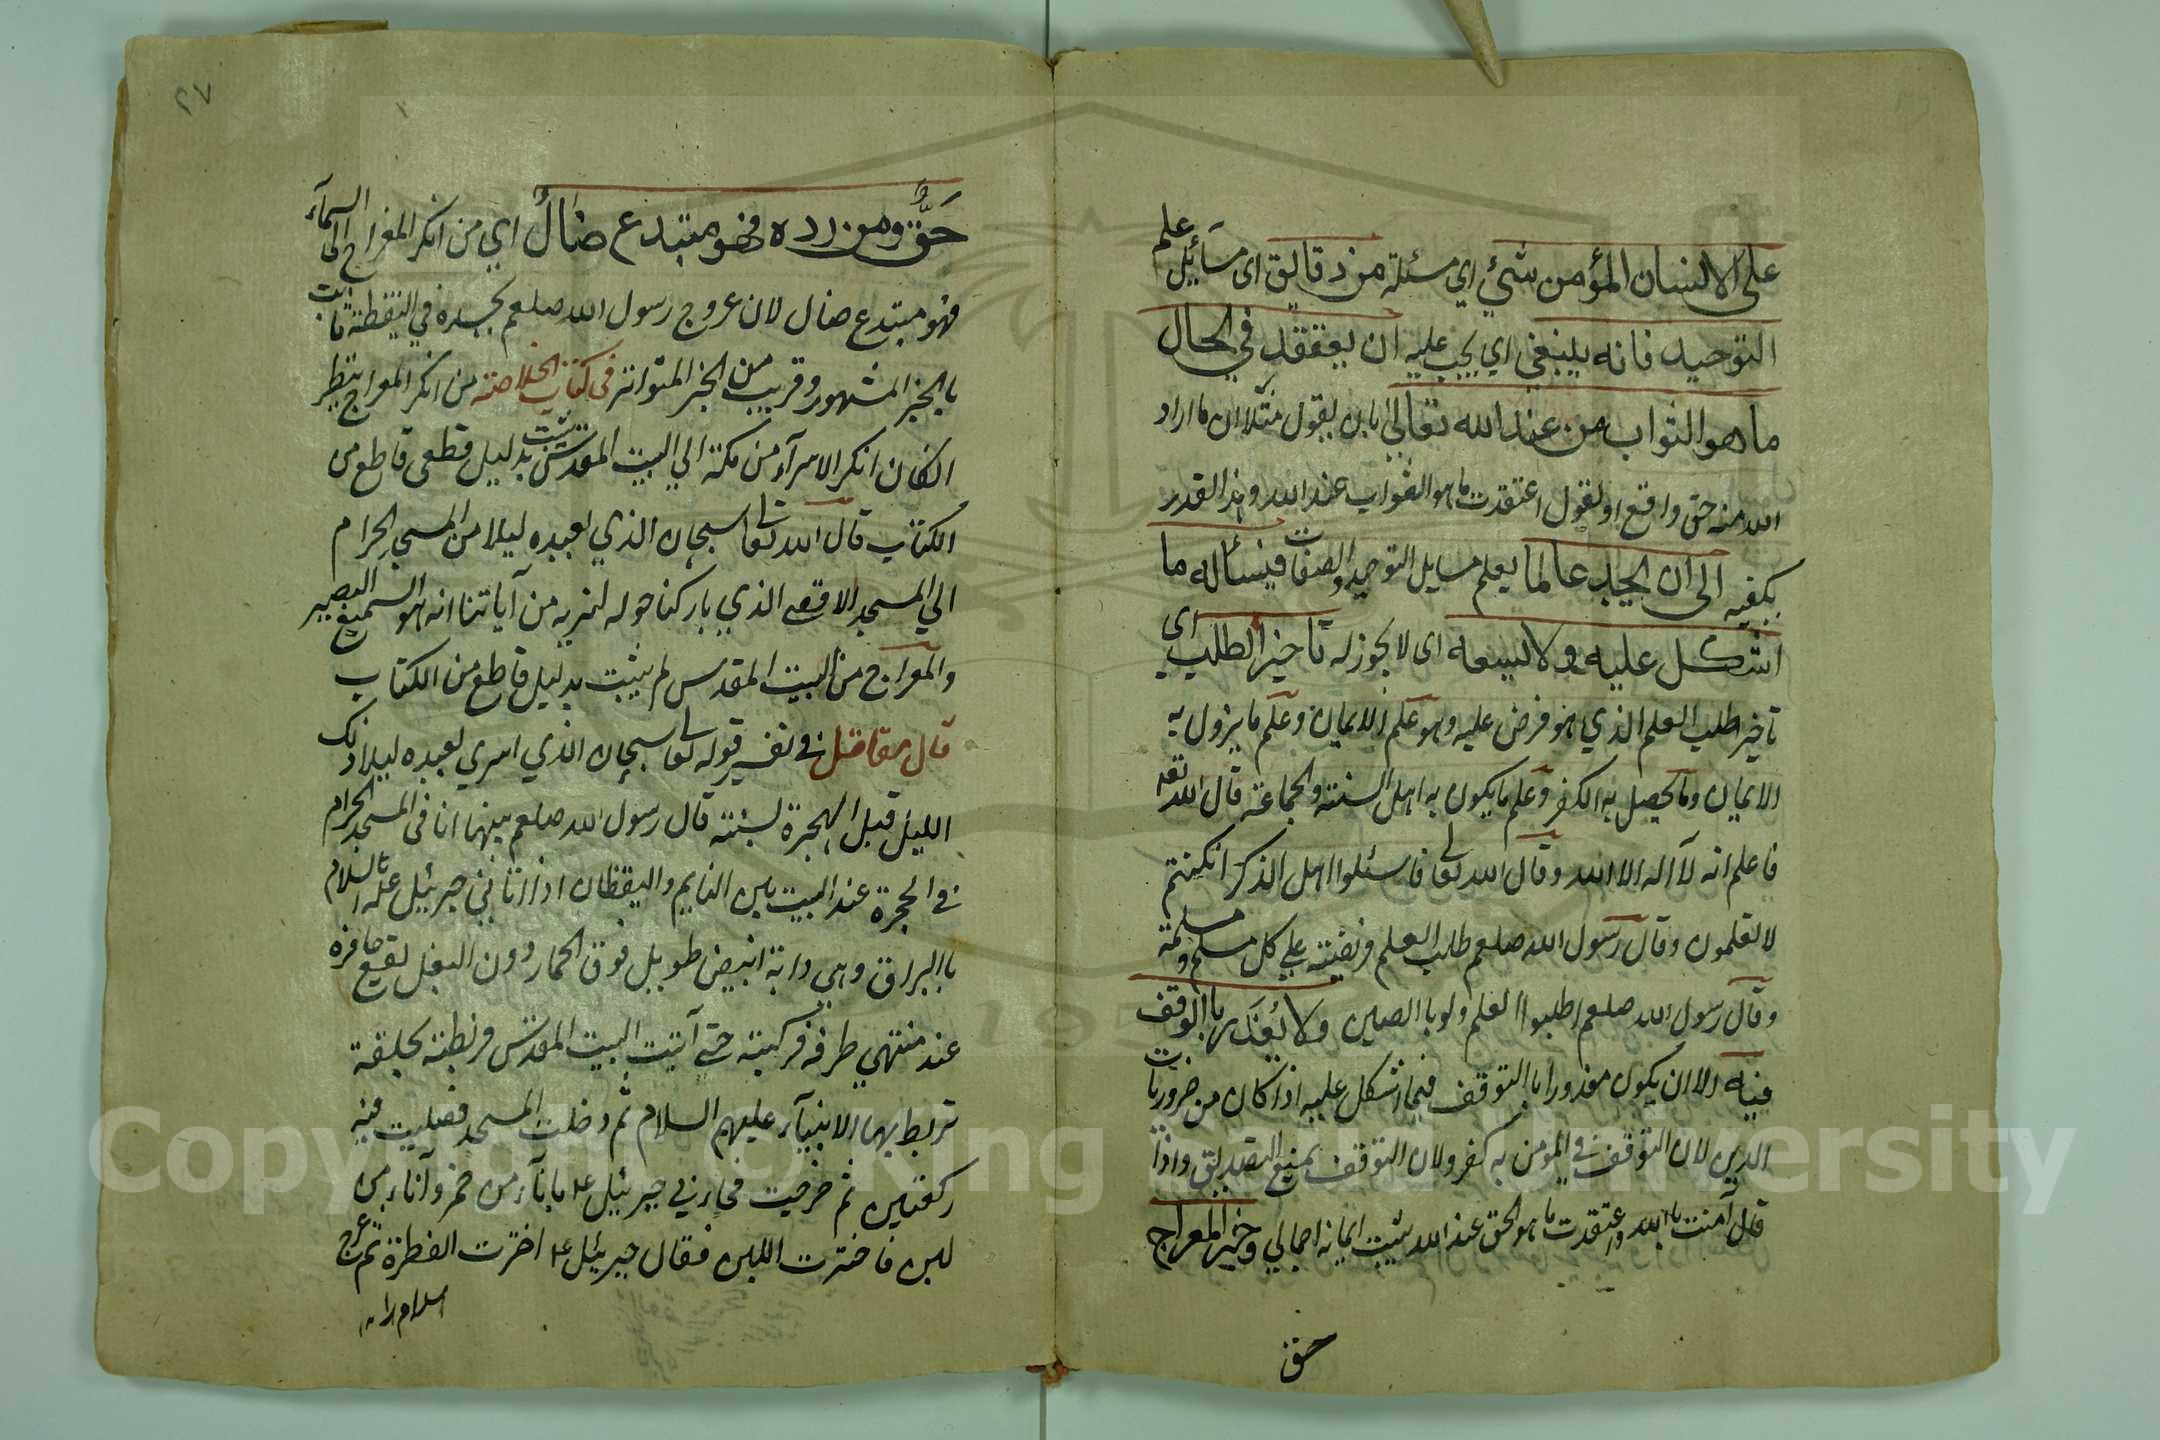 على الانسان المؤمن شيئ اي مسئلة من دقايق اى مسآئل علم
التوحيد فانه ينبغي اي يجب عليه ان يعتقد في الحال
ما هو الثواب من عند الله تعالى بان يقول مثلا ان ما اراد
الله منه حق واقع او يقول اعتقدت ما هو الثواب عند الله وهذا القدر
يكفيه الى ان يجد عالما يعلم مسايل التوحيد والصفات فيسأله ما
اشكل عليه ولا يسعه اى لا يجوز له تاخير الطلب اى
تاخير طلب العلم الذي هو فرض عليه وهو علم الايمان وعلم ما يزول به
الايمان وما يحصل به الكفر وعلم ما يكون به اهل السنة والجماعة قال الله تعه
فاعلم انه لآ اله الا الله وقال الله تعالى فاسئلوا اهل الذكر ان كنتم
لا تعلمون وقال رسول الله صلعم طلب العلم فريضة علي كل مسلم ومسلمة
وقال رسول الله صلعم اطلبوا العلم ولو با الصين ولا يعذر با الوقف
فيه الا ان يكون معذورا با التوقف فيما اشكل عليه اذا كان من ضروريات
الدين لان التوقف في المؤمن به كفر ولان التوقف يمنع التصديق واذا
قال آمنت بالله واعتقدت ما هو الحق عند الله يثبت ايمانه اجمالي وخبر المعراج
حق
٤٧
حق ومن رده فهو مبتدع ضال اي من انكر المعراج الى السمآء
فهو مبتدع ضال لان عروج رسول الله صلعم بجسده في اليقظة ثابت
با الخبر المشهور وقريب من الخبر المتواتر فى كتاب الخلاصة من انكر المعراج ينظر
ان كان انكر الاسرآء من مكة الي البيت المقدس يثبت بدليل قطعى قاطع من
الكتاب قال الله تعالى سبحان الذي بعبده ليلا من المسجد الحرام
الي المسجد الاقصى الذي باركنا حوله لنريه من آياتنا انه هو السميع البصير
والمعراج من البيت المقدس لم يثبت بدليل قاطع من الكتاب
قال مقاتل في تفسير قوله تعالى سبحان الذي اسري بعبده ليلا ذلك
الليل قبل الهجرة لسنة قال رسول الله صلعم بينما انا فى المسجد الحرام
في الحجرة عند البيت بين النايم واليقظان اذا اتاني جبرئيل عليه السلام
با البراق وهي دابة ابيض طويل فوق الحمار دون البغل يقع حافره
عند منتهي طرفه فركبته حتى آتيت البيت المقدس فربطته بحلقة
تربط بها الانبيآء عليهم السلام ثم دخلت المسجد فصليت فيه
ركعتين ثم خرجت فجاءني جبرئيل ع م بانآء من خمر وآناء من
لبن فاخترت اللبن فقال جبرئيل ع م اخترت الفطرة ثم عرج